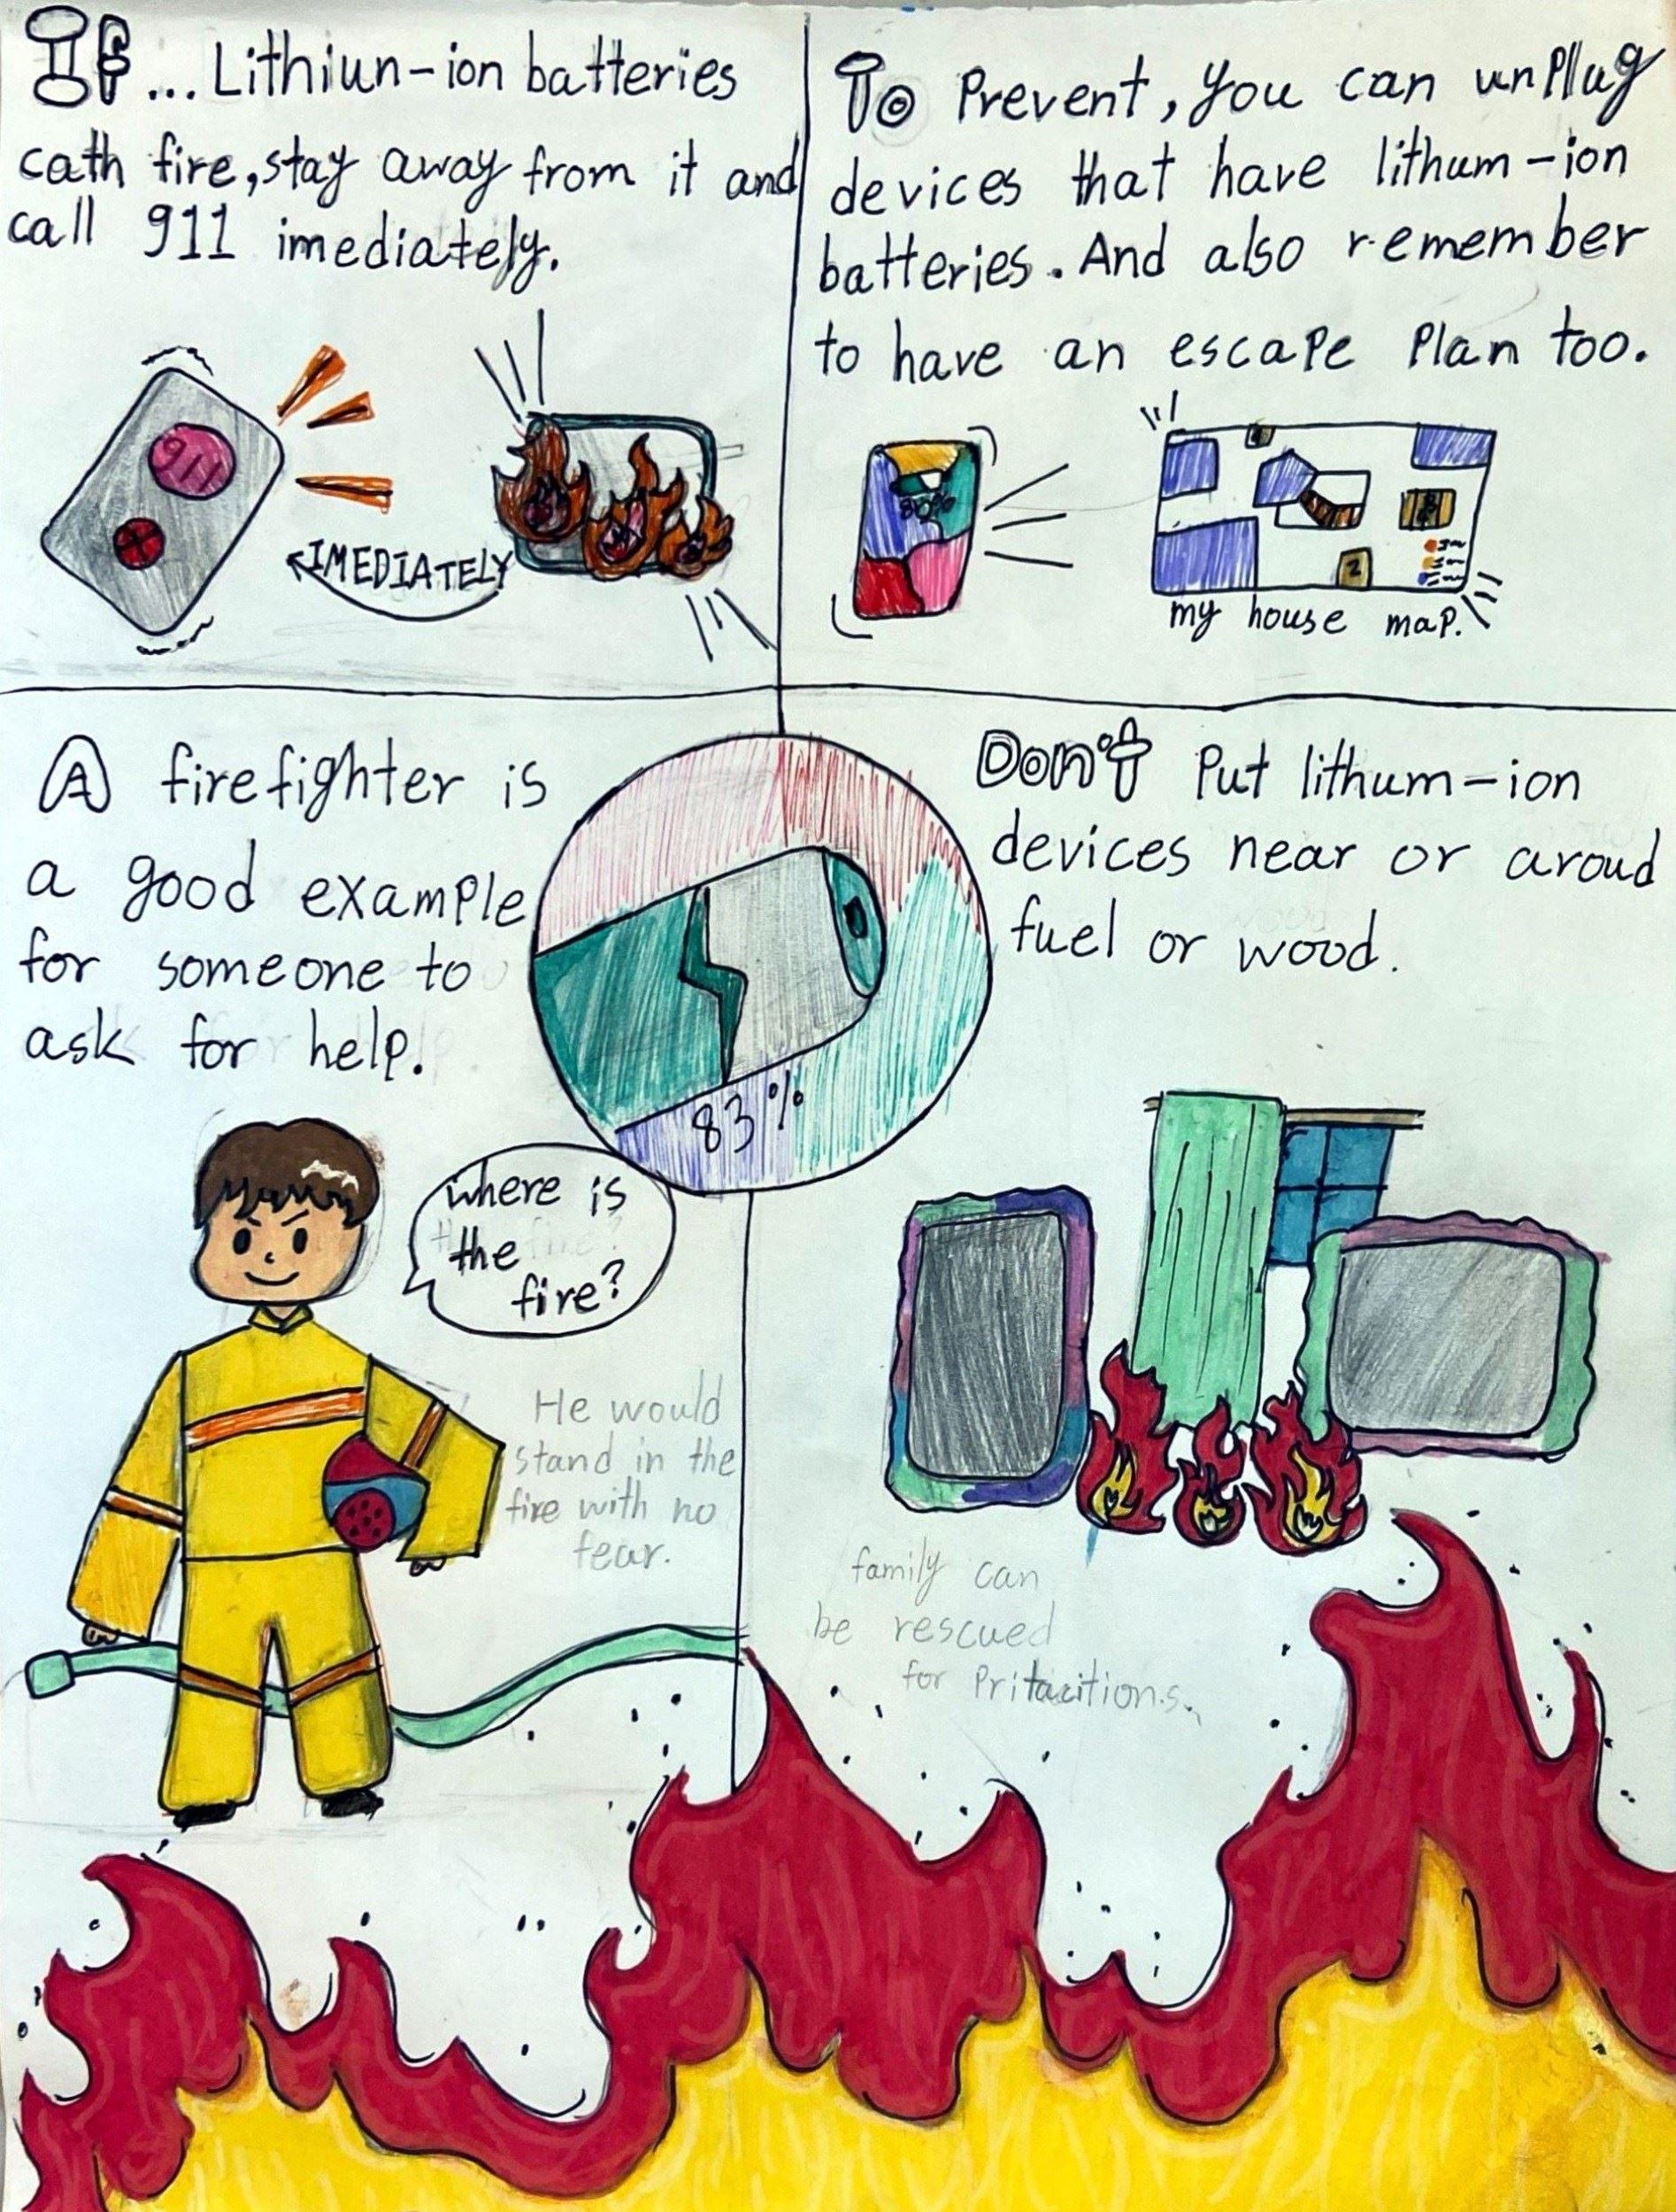 If... Lithiun-ion batteries
cath fire, stay away from it and
call 911 imediately.
911
IMEDIATELY
To Prevent, you can unplug
devices that have lithum-ion
batteries. And also remember
to have an escape plan too.
2
my house map.
A firefighter is
a good example
for someone to
ask for help.
83%
Don't Put lithum-ion
devices near or aroud
fuel or wood.
where is
the
fire?
He would
stand in the
fire with no
fear.
family can
be rescued
for